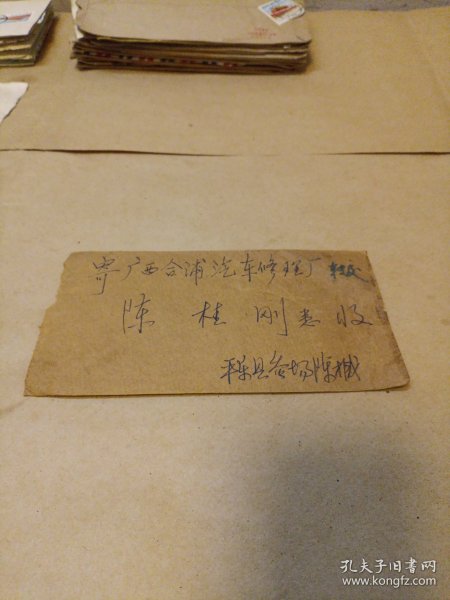 寄广西合浦汽车修理厂转交
陈桂刚 收
平乐县 场陈
孔夫子旧书网
www.kongfz.com